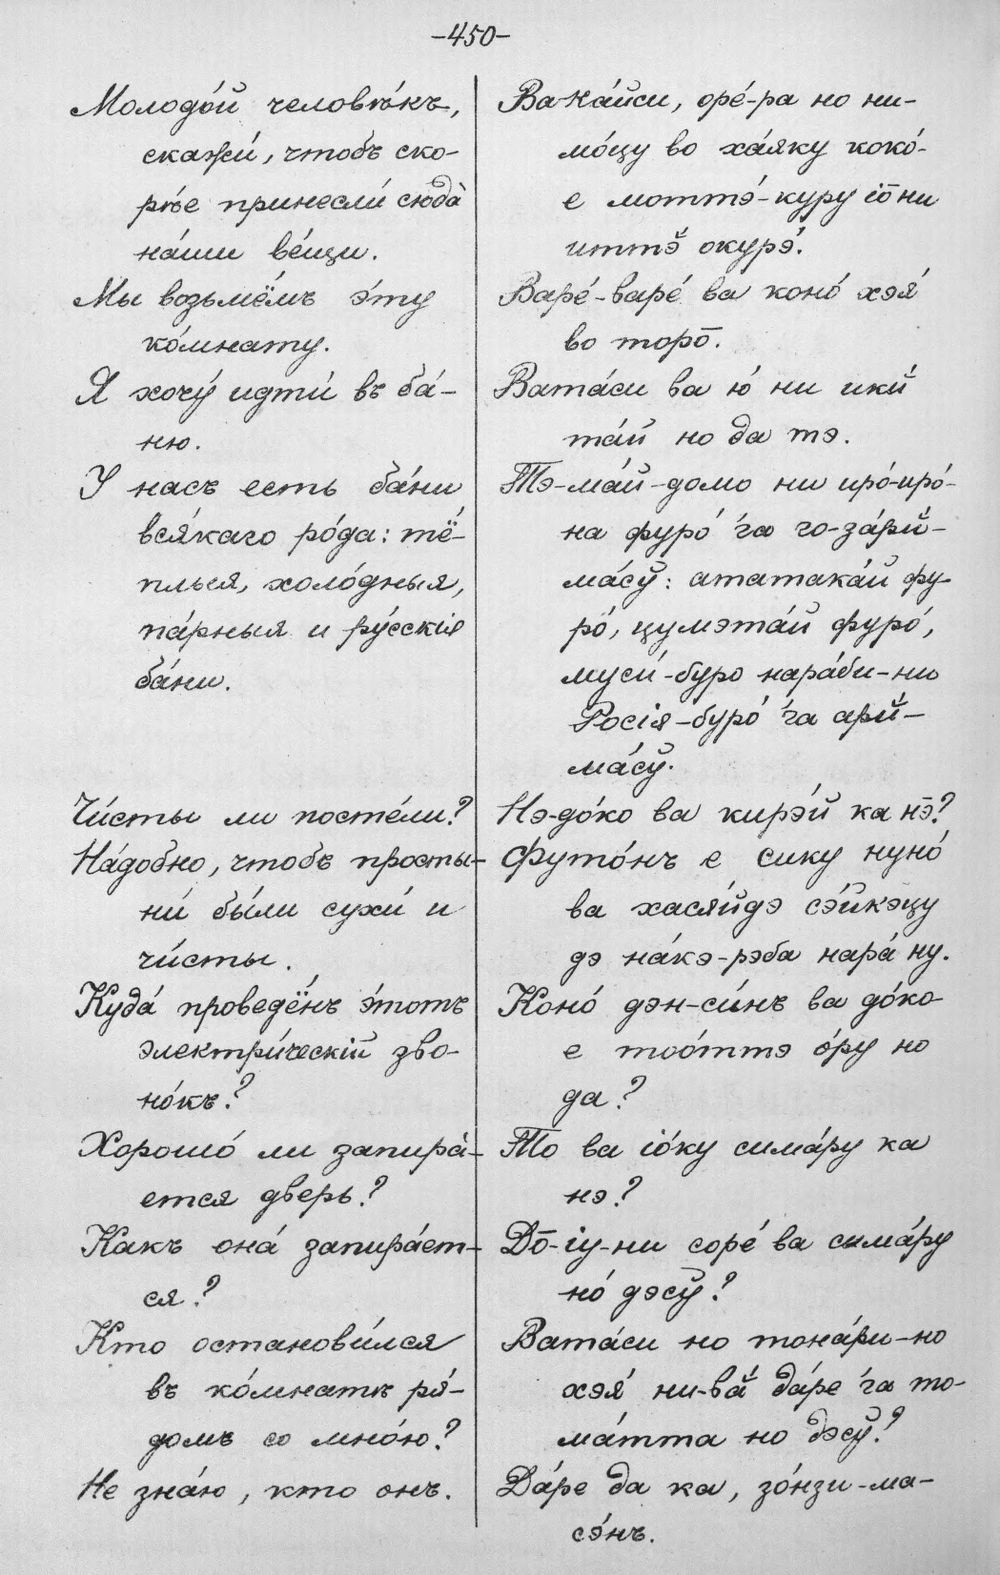 -450-
Молодо́й человѣ́къ,
скажи́, чтобъ ско-
рѣ́е принесли́ сюда̀
на́ши ве́щи.
Мы возьмёмъ э́ту
ко́мнату.
Я хочу́ идти́ въ ба́-
ню.
У насъ есть ба́ни
вся́каго ро́да: тё-
плыя, холо́дныя,
па́рныя и ру́сскія
ба́ни.
Чи́сты ли посте́ли?
На́добно, чтобъ просты-
ни́ бы́ли сухи́ и
чи́сты.
Куда́ проведёнъ э́тотъ
электри́ческій зво-
но́къ?
Хорошо́ ли запира́-
ется дверь?
Какъ она́ запира́ет-
ся?
Кто останови́лся
въ ко́мнатѣ ря́-
домъ со мно́ю?
Не зна́ю, кто онъ.
Вака́йси, оре́-ра но ни-
мо́цу во ха́яку коко́-
е моттэ́-куру іо̄ ни
иттэ̆ окурэ́.
Варе́-варе́ ва коно́ хэя́
во торо̄.
Вата́си ва ю́ ни икй
та́й но да тэ.
Тэ-ма́й-домо ни иро́-иро́-
на фуро́ ’га го-за́рй-
ма́сў: ататака́й фу-
ро́, цумэта́й фуро́,
муси́-буро нара́би-ни
Росія-буро́ ’га арй-
ма́сў.
Нэ-до́ко ва кирэ́й ка нэ̄?
Футо́нъ е сику нуно́
ва хася́йдэ сэ́йкэцу
дэ на́кэ-рэба нара́ ну.
Коно́ дэн-си́нъ ва до́ко-
е тоо́ттэ о́ру но
да?
То ва іо́ку сима́ру ка
нэ?
До̄-іу-ни соре́ ва сима́ру
но́ дэсў?
Вата́си но тона́ри-но
хэя́ ни-вӑ да́ре ’га то-
ма́тта но дэсў?
Да́ре да ка, зо́нзи-ма-
сэ́нъ.